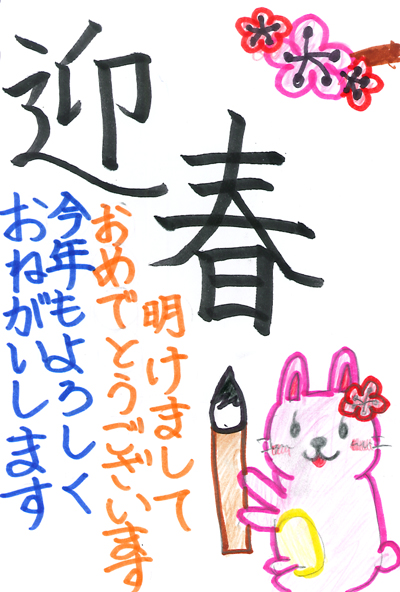 迎春
明けまして
おめでとうございます
今年もよろしく
おねがいします